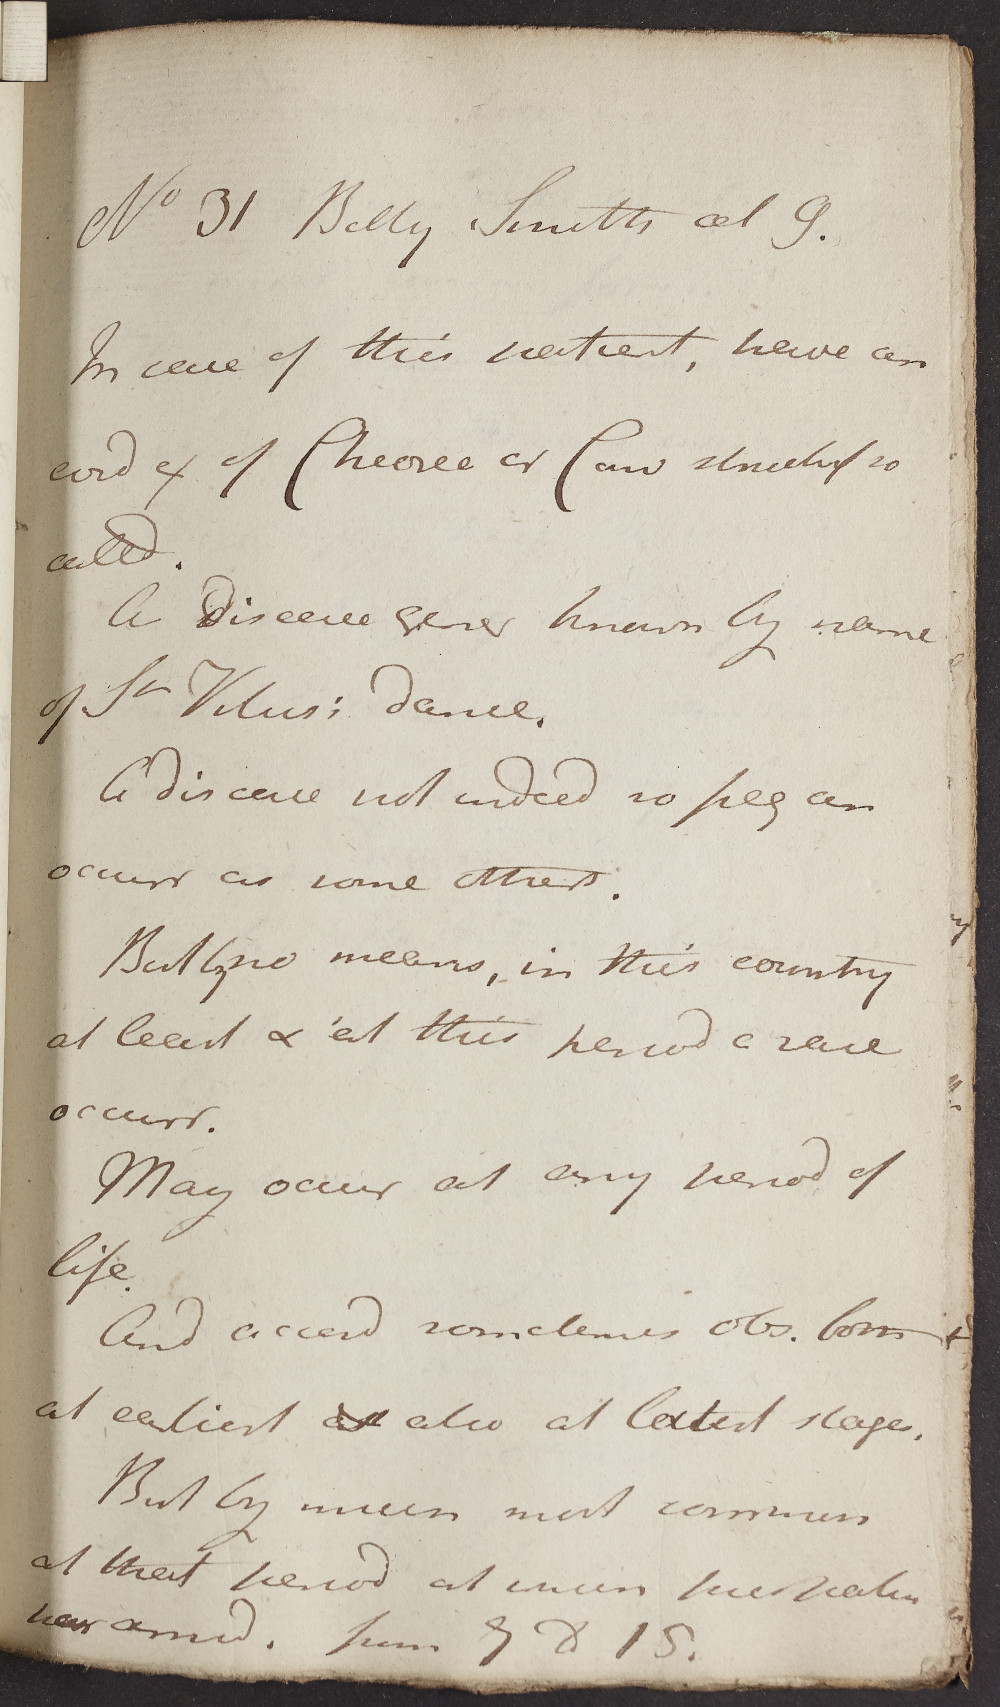 No 31 Betty Smith aet 9.
In case of this patient, have an
evid ex of Chorea or Cam strictly so
calld.
A Disease gener known by name
of St Vitus's dance.
A disease not indeed so freq an
occurr as some others.
But by no means, in this country
at least & at this period a rare
occurr.
May occur at any period of
life.
And accord sometimes obs. both
at earliest as also at latest stages.
But by much most common
at that period at which this patien
has arrived. from 7 to 15.